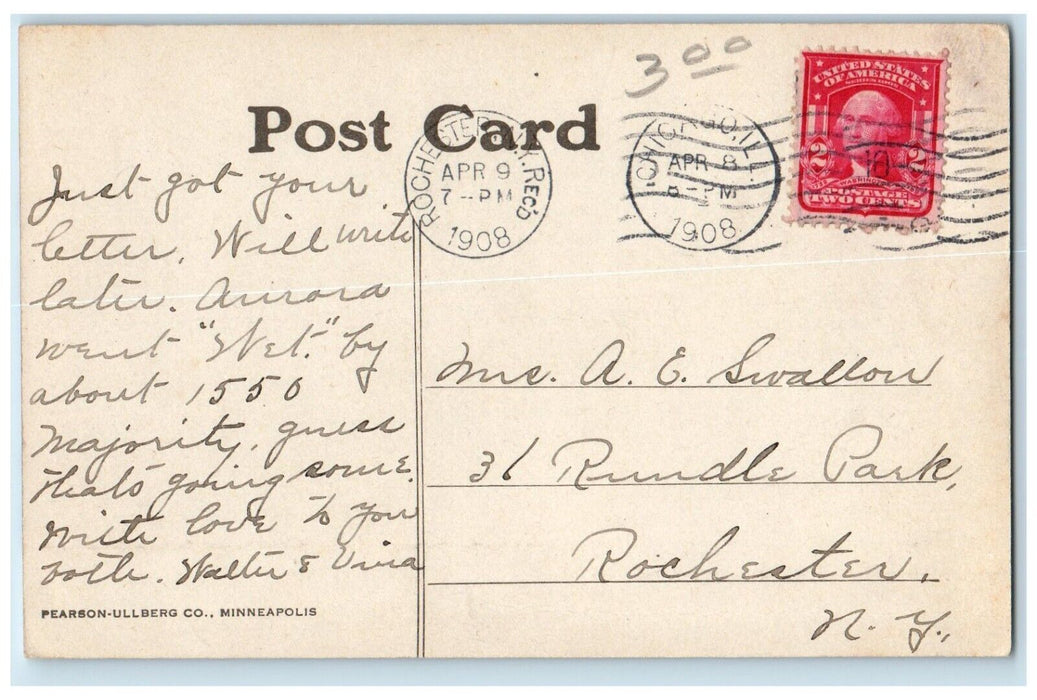 3 00
UNITED STATES
OF AMERICA
2 2
WASHINGTON
POSTAGE
TWO CENTS
10
Post Card
ROCHESTER, N.Y. REC'D
APR 9
7-PM
1908
CHICAGO, ILL.
APR 8
8-PM
1908
Just got your
letter. Will write
later. Aurora
went "Wet." by
about 1550
Majority. guess
thats going some.
Write love to you
both. Walter &
Mrs. A. E. Swallow
31 Rundle Park,
Rochester,
N. Y.,
PEARSON-ULLBERG CO., MINNEAPOLIS